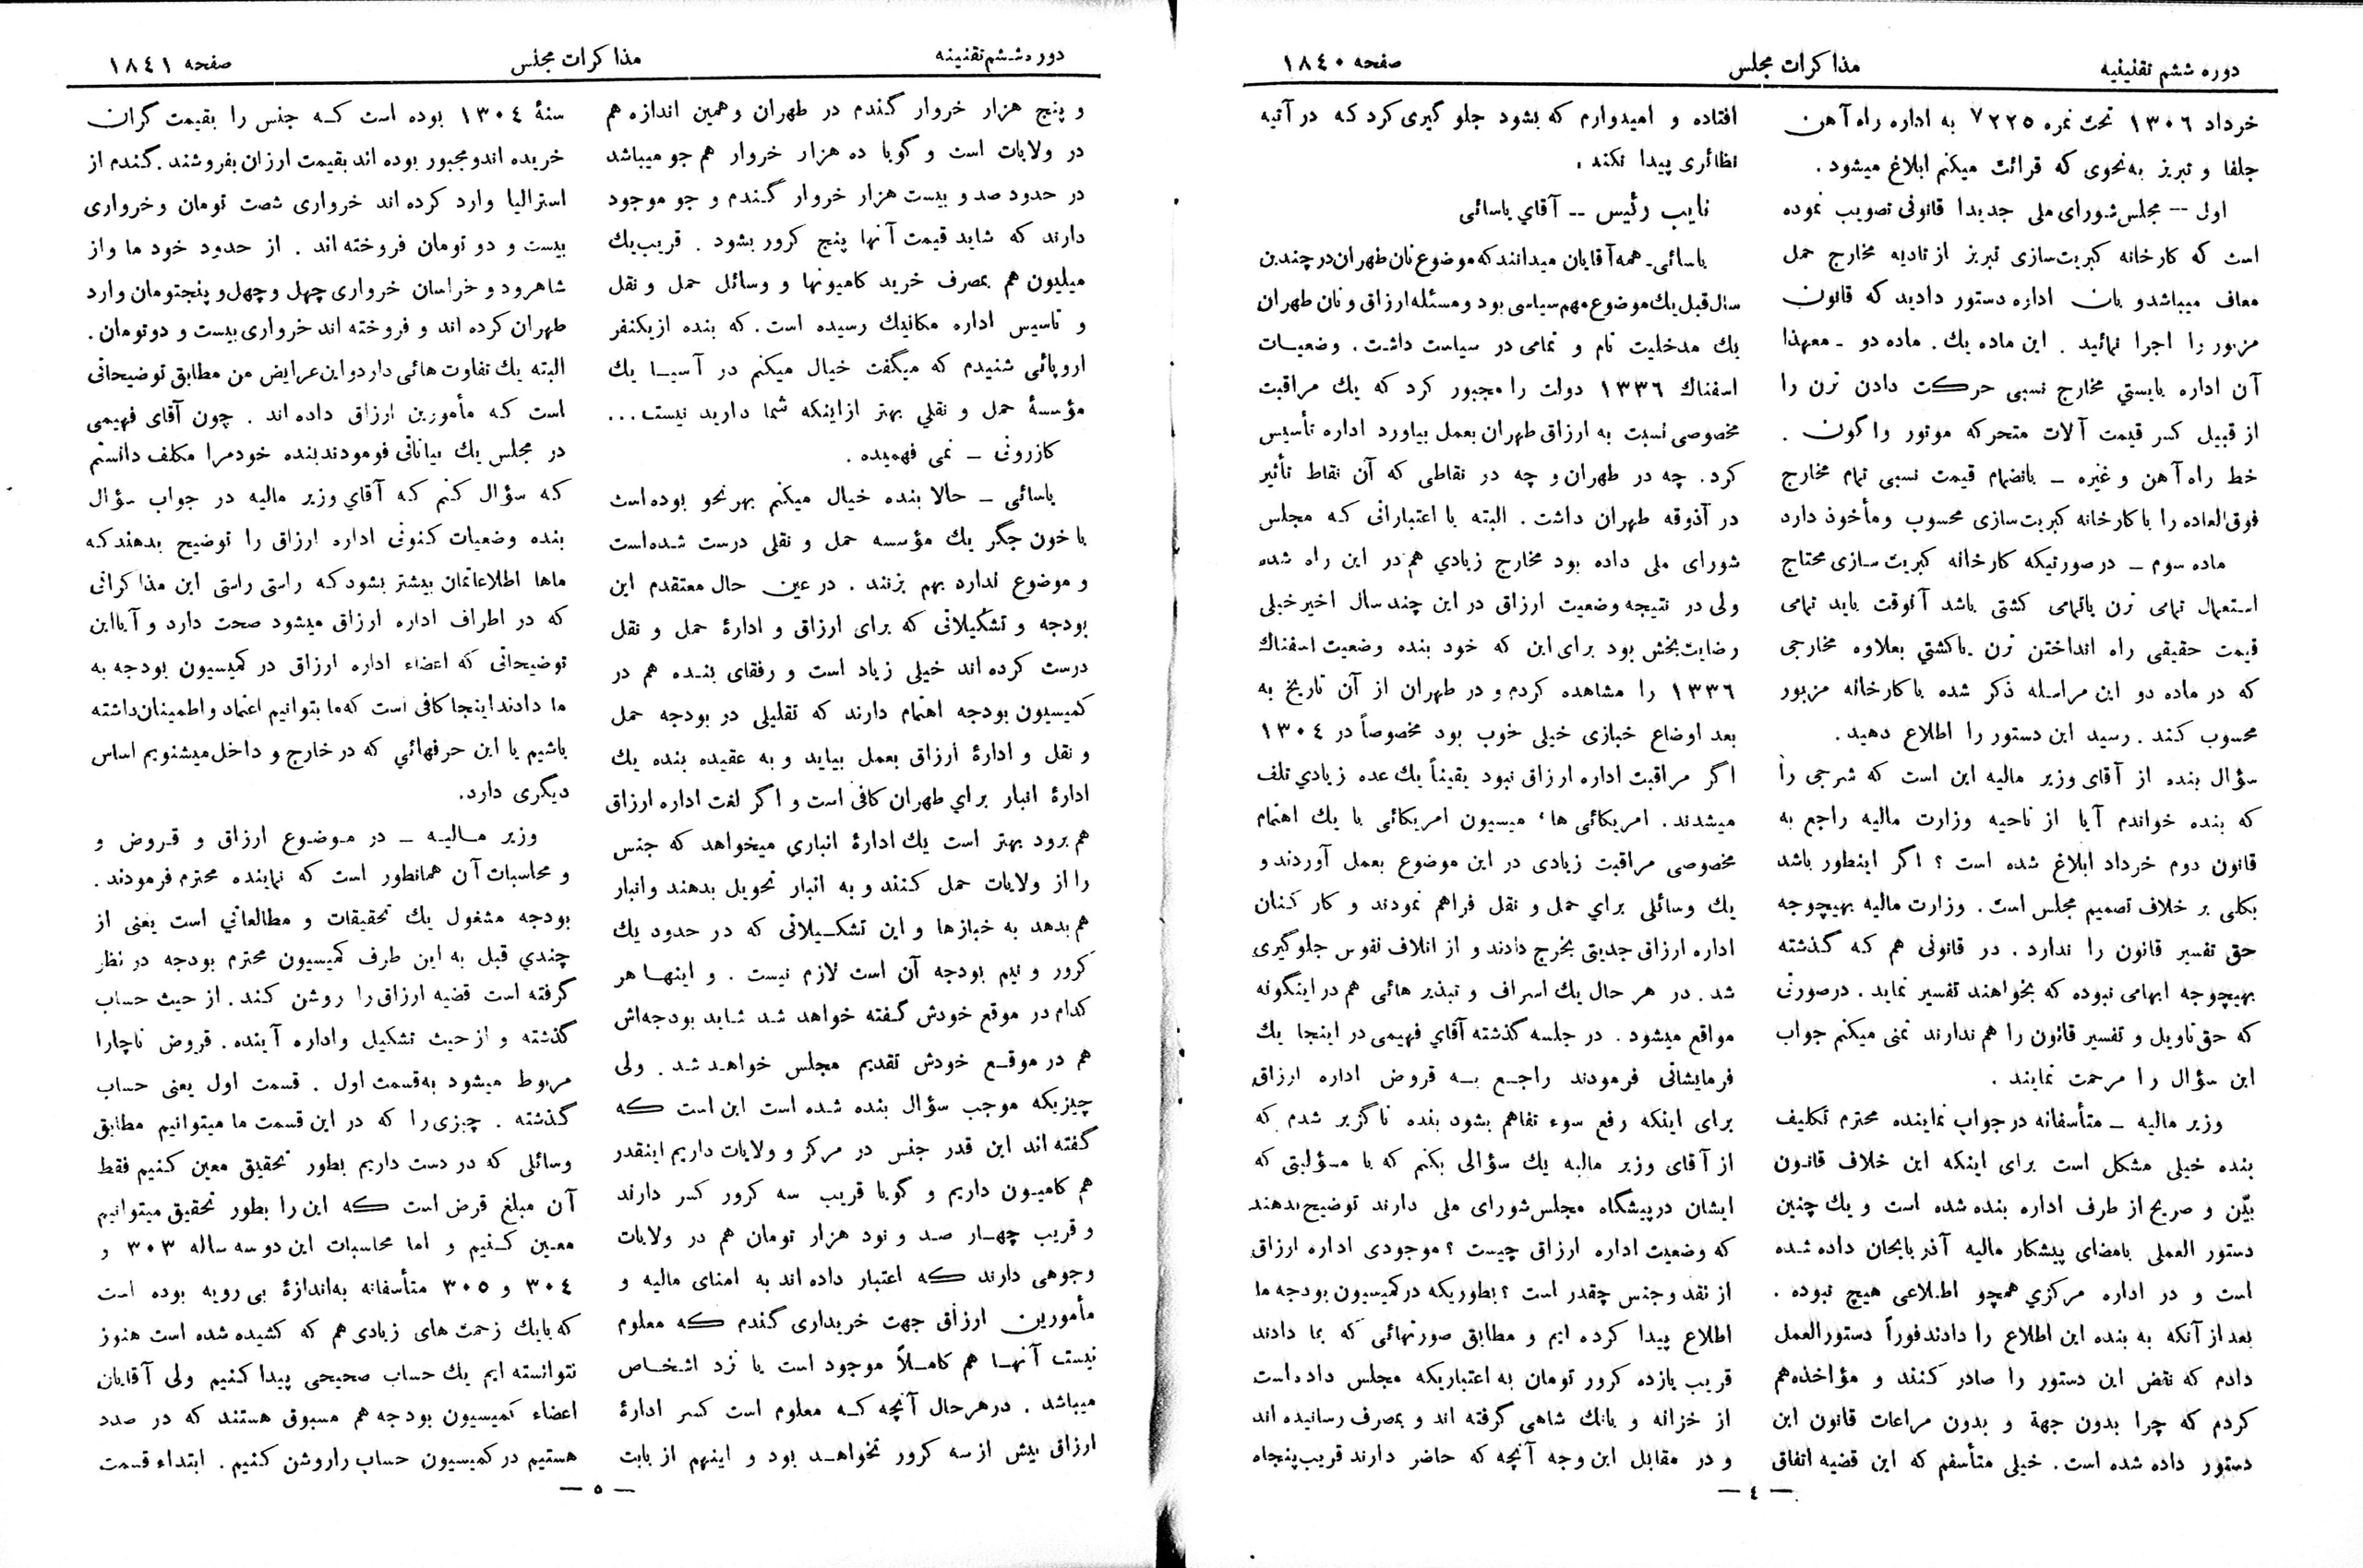 دوره ششم تقنینیه
مذاکرات مجلس
صفحه ۱۸۴۰
خرداد ۱۳۰۶ تحت نمره ۷۲۲۵ به اداره راه آهن
جلفا و تبریز به‌نحوی که قرائت میکنم ابلاغ میشود .
اول -- مجلس‌شورای ملی جدیدا قانونی تصویب نموده
است که کارخانه کبریت‌سازی تبریز از تادیه مخارج حمل
معاف میباشدو بان اداره دستور دادید که قانون
مزبور را اجرا نمائید . این ماده یك . ماده دو ـ معهذا
آن اداره بایستي مخارج نسبی حرکت دادن ترن را
از قبیل کسر قیمت آلات متحرکه موتور واگون .
خط راه آهن و غیره ـ بانضمام قیمت نسبی تمام مخارج
فوق‌العاده را با کارخانه کبریت‌سازی محسوب ومأخوذ دارد
ماده سوم ـ درصورتیکه کارخانه کبریت سازی محتاج
استعمال تمامی ترن یاتمامی کشتی باشد آنوقت باید تمامی
قیمت حقیقی راه انداختن ترن یاکشتي بعلاوه مخارجی
که در ماده دو این مراسله ذکر شده با کارخانه مزبور
محسوب کنند . رسید این دستور را اطلاع دهید .
سؤال بنده از آقای وزیر مالیه این است که شرحی را
که بنده خواندم آیا از ناحیه وزارت مالیه راجع به
قانون دوم خرداد ابلاغ شده است ؟ اگر اینطور باشد
بکلی بر خلاف تصمیم مجلس است . وزارت مالیه بهیچوجه
حق تفسیر قانون را ندارد . در قانونی هم که گذشته
بهیچوجه ابهامی نبوده که بخواهند تفسیر نماید . درصورتی
که حق تاویل و تفسیر قانون را هم ندارند تمنی میکنم جواب
این سؤال را مرحمت نمایند .
وزیر مالیه ـ متأسفانه در جواب نماینده محترم تکلیف
بنده خیلی مشکل است برای اینکه این خلاف قانون
بیّن و صریح از طرف اداره بنده شده است و یك چنین
دستور العملی بامضای پیشکار مالیه آذربایجان داده شده
است و در اداره مرکزي همچو اطلاعی هیچ نبوده .
بعد از آنکه به بنده این اطلاع را دادند فوراً دستورالعمل
دادم که نقض این دستور را صادر کنند و مؤاخذه هم
کردم که چرا بدون جهة و بدون مراعات قانون این
دستور داده شده است . خیلی متأسفم که این قضیه اتفاق
افتاده و امیدوارم که بشود جلو گیری کرد که در آتیه
نظائری پیدا نکند .
نایب رئیس -- آقاي یاسائی
یاسائی ـ همه آقایان میدانند که موضوع نان طهران در چندین
سال قبل یك موضوع مهم سیاسی بود و مسئله ارزاق و نان طهران
یك مدخلیت تام و تمامی در سیاست داشت . وضعیات
اسفناك ۱۳۳۶ دولت را مجبور کرد که یك مراقبت
مخصوصی نسبت به ارزاق طهران بعمل بیاورد اداره تأسیس
کرد . چه در طهران و چه در نقاطی که آن نقاط تأثیر
در آذوقه طهران داشت . البته با اعتباراتی که مجلس
شورای ملی داده بود مخارج زیادي هم در این راه شده
ولی در نتیجه وضعیت ارزاق در این چند سال اخیر خیلی
رضایت‌بخش بود برای این که خود بنده وضعیت اسفناك
۱۳۳۶ را مشاهده کردم و در طهران از آن تاریخ به
بعد اوضاع خبازی خیلی خوب بود مخصوصاً در ۱۳۰۴
اگر مراقبت اداره ارزاق نبود یقیناً یك عده زیادي تلف
میشدند . امریکائی ها، میسیون امریکائی با یك اهتمام
مخصوصی مراقبت زیادی در این موضوع بعمل آوردند و
یك وسائلی براي حمل و نقل فراهم نمودند و کارکنان
اداره ارزاق جدیتی بخرج دادند و از اتلاف نفوس جلوگیری
شد . در هر حال یك اسراف و تبذیر هائی هم در اینگونه
مواقع میشود . در جلسه گذشته آقاي فهیمی در اینجا یك
فرمایشاتی فرمودند راجع به قروض اداره ارزاق
برای اینکه رفع سوء تفاهم بشود بنده ناگزیر شدم که
از آقای وزیر مالیه یك سؤالی بکنم که با مسؤلیتی که
ایشان در پیشگاه مجلس‌شورای ملی دارند توضیح بدهند
که وضعیت اداره ارزاق چیست ؟ موجودی اداره ارزاق
از نقد و جنس چقدر است ؟ بطوریکه در کمیسیون بودجه ما
اطلاع پیدا کرده ایم و مطابق صورتهائی که بما دادند
قریب یازده کرور تومان به اعتباریکه مجلس داده است
از خزانه و بانك شاهی گرفته اند و بمصرف رسانیده اند
و در مقابل این وجه آنچه که حاضر دارند قریب پنجاه
— ۴ —
دوره ششم تقنینه
مذاکرات مجلس
صفحه ۱۸۴۱
و پنج هزار خروار گندم در طهران و همین اندازه هم
در ولایات است و گویا ده هزار خروار هم جو میباشد
در حدود صد و بیست هزار خروار گندم و جو موجود
دارند که شاید قیمت آنها پنج کرور بشود . قریب یك
میلیون هم بمصرف خرید کامیونها و وسائل حمل و نقل
و تاسیس اداره مکانیك رسیده است . که بنده از یکنفر
اروپائی شنیدم که میگفت خیال میکنم در آسیا یك
مؤسسهٔ حمل و نقلي بهتر از اینکه شما دارید نیست...
کازرونی ـ نمی فهمیده .
یاسائی ـ حالا بنده خیال میکنم بهر نحو بوده است
با خون جگر یك مؤسسه حمل و نقلی درست شده است
و موضوع ندارد بهم بزنند . در عین حال معتقدم این
بودجه و تشکیلاتی که برای ارزاق و ادارهٔ حمل و نقل
درست کرده اند خیلی زیاد است و رفقای بنده هم در
کمیسیون بودجه اهتمام دارند که تقلیلی در بودجه حمل
و نقل و ادارهٔ ارزاق بعمل بیاید و به عقیده بنده یك
ادارهٔ انبار براي طهران کافی است و اگر لغت اداره ارزاق
هم برود بهتر است یك ادارهٔ انباري میخواهد که جنس
را از ولایات حمل کنند و به انبار تحویل بدهند وانبار
هم بدهد به خبازها و این تشکیلاتی که در حدود یك
کرور و نیم بودجه آن است لازم نیست . و اینها هر
کدام در موقع خودش گفته خواهد شد شاید بودجه‌اش
هم در موقع خودش تقدیم مجلس خواهد شد . ولی
چیزیکه موجب سؤال بنده شده است این است که
گفته اند این قدر جنس در مرکز و ولایات داریم اینقدر
هم کامیون داریم و گویا قریب سه کرور کسر دارند
و قریب چهار صد و نود هزار تومان هم در ولایات
وجوهی دارند که اعتبار داده اند به امنای مالیه و
مأمورین ارزاق جهت خریداری گندم که معلوم
نیست آنها هم کاملاً موجود است یا نزد اشخاص
میباشد . در هر حال آنچه که معلوم است کسر ادارهٔ
ارزاق بیش از سه کرور نخواهد بود و اینهم از بابت
سنهٔ ۱۳۰۴ بوده است که جنس را بقیمت گران
خریده اند و مجبور بوده اند بقیمت ارزان بفروشند . گندم از
استرالیا وارد کرده اند خرواری شصت تومان و خرواری
بیست و دو تومان فروخته اند . از حدود خود ما و از
شاهرود و خراسان خرواری چهل و چهل و پنجتومان وارد
طهران کرده اند و فروخته اند خرواری بیست و دو تومان .
البته یك تفاوت هائی دارد و این عرایض من مطابق توضیحاتی
است که مأمورین ارزاق داده اند . چون آقای فهیمی
در مجلس یك بیاناتی فومودند بنده خودمرا مکلف دانستم
که سؤال کنم که آقاي وزیر مالیه در جواب سؤال
بنده وضعیات کنونی اداره ارزاق را توضیح بدهند که
ماها اطلاعاتمان بیشتر بشود که راستی راستی این مذاکراتی
که در اطراف اداره ارزاق میشود صحت دارد و آیا این
توضیحاتی که اعضاء اداره ارزاق در کمیسیون بودجه به
ما دادند اینجا کافی است که ما بتوانیم اعتماد و اطمینان داشته
باشیم یا این حرفهائي که در خارج و داخل میشنویم اساس
دیگری دارد .
وزیر مالیه ـ در موضوع ارزاق و قروض و
و محاسبات آن همانطور است که نماینده محترم فرمودند .
بودجه مشغول یك تحقیقات و مطالعاتي است یعنی از
چندي قبل به این طرف کمیسیون محترم بودجه در نظر
گرفته است قضیه ارزاق را روشن کند . از حیث حساب
گذشته و از حیث تشکیل و اداره آینده . قروض ناچارا
مربوط میشود به‌قسمت اول . قسمت اول یعنی حساب
گذشته . چیزی را که در این قسمت ما میتوانیم مطابق
وسائلی که در دست داریم بطور تحقیق معین کنیم فقط
آن مبلغ قرض است که این را بطور تحقیق میتوانیم
معین کنیم و اما محاسبات این دو سه ساله ۳۰۳ و
۳۰۴ و ۳۰۵ متأسفانه به‌اندازهٔ بی رویه بوده است
که با یك زحمت های زیادی هم که کشیده شده است هنوز
نتوانسته ایم یك حساب صحیحی پیدا کنیم ولی آقایان
اعضاء کمیسیون بودجه هم مسبوق هستند که در صدد
هستیم در کمیسیون حساب را روشن کنیم . ابتداء قسمت
— ۵ —